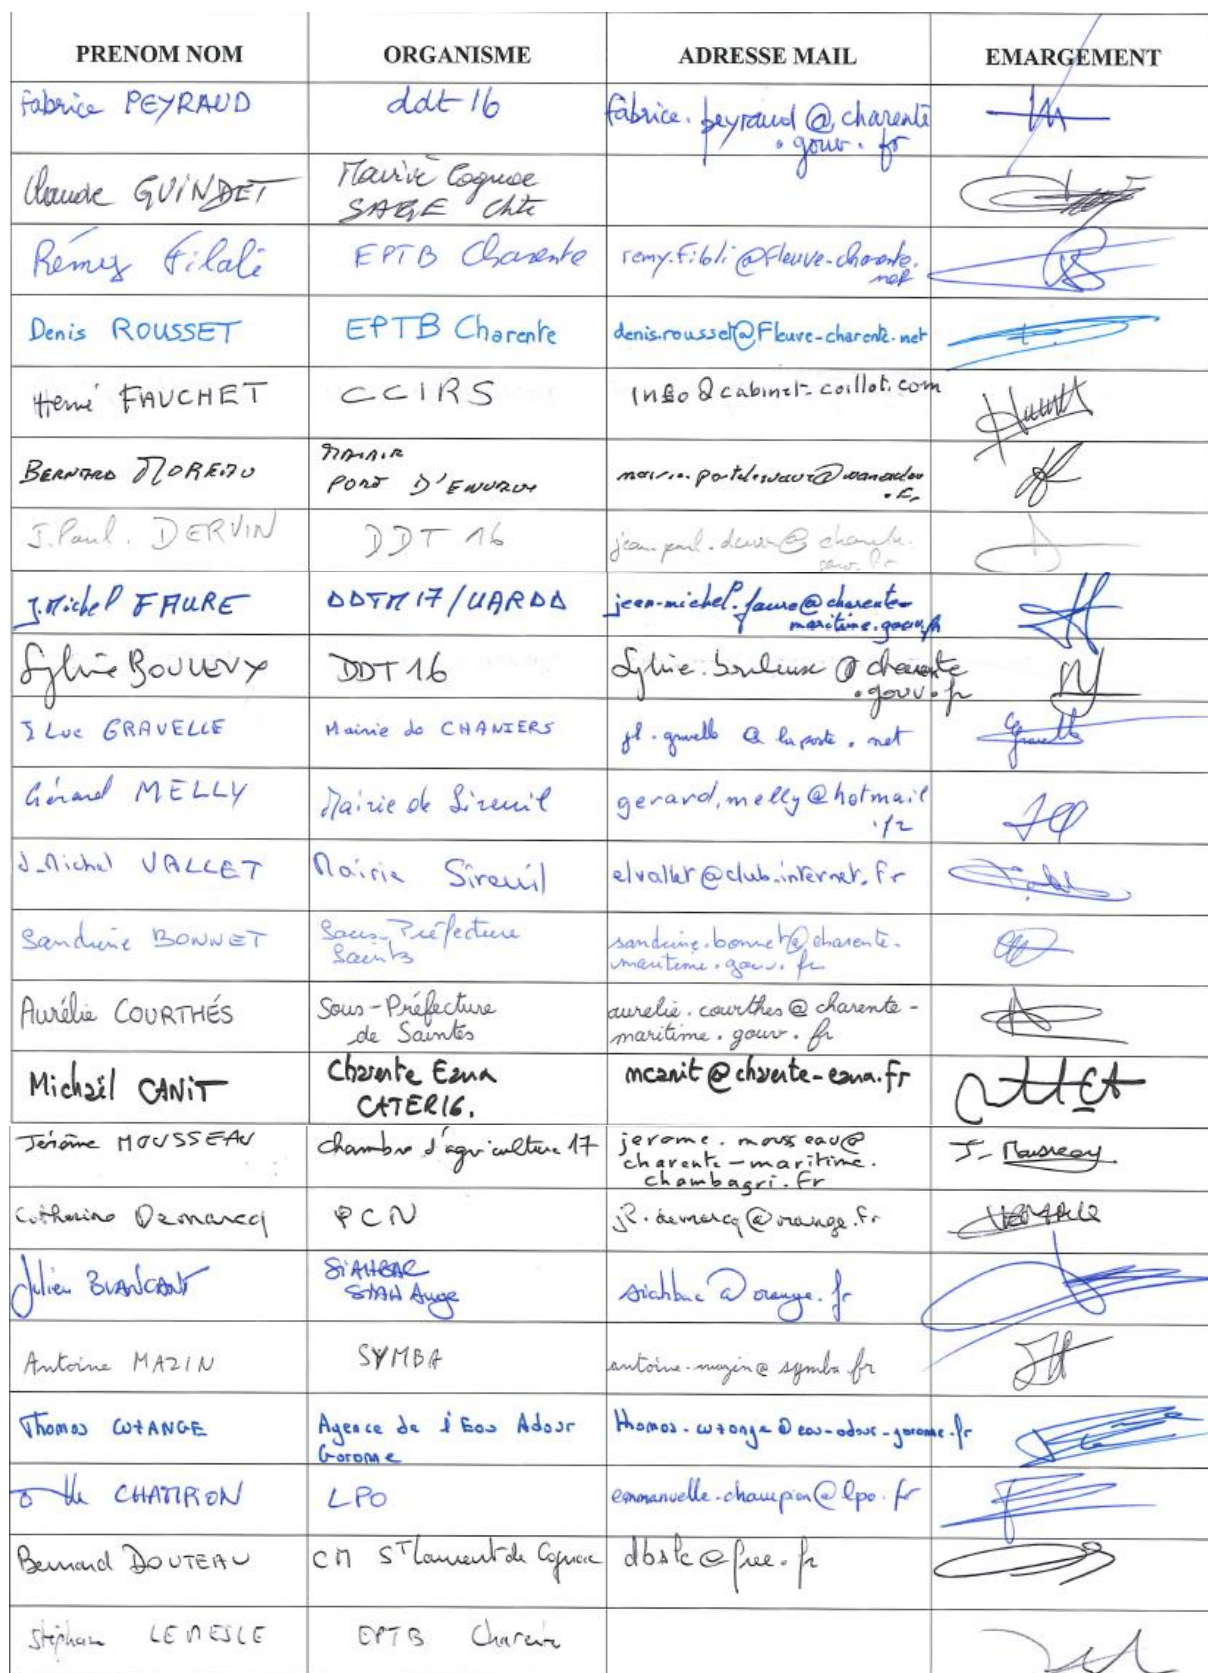 PRENOM NOM ORGANISME ADRESSE MAIL EMARGEMENT
Fabrice PEYRAUD ddt 16 fabrice.peyraud@charente
.gouv.fr
Claude GUINDET Mairie Cognac
SAGE Chte
Rémy Filali EPTB Charente remy.filali@fleuve-charente.
net
Denis ROUSSET EPTB Charente denis.rousset@fleuve-charente.net
Hervé FAUCHET CCIRS info@cabinet-coillot.com
BERNARD MOREAU MAIRIE
PORT D'ENVAUX
J.Paul. DERVIN DDT 16 jean-paul.dervin@charente.
gouv.fr
J.Michel FAURE DDTM17/UARDD jean-michel.faure@charente-
maritime.gouv.fr
Sylvie BOULEUX DDT16 Sylvie.bouleux@charente
.gouv.fr
J Luc GRAVELLE Mairie de CHANIERS jl.gravelle@laposte.net
Gérard MELLY Mairie de Sireuil gerard.melly@hotmail
.fr
J-Michel VALLET Mairie Sireuil elvallet@club.internet.fr
Sandrine BONNET Sous-Préfecture sandrine.bonnet@charente-
Saintes maritime.gouv.fr
Aurélie COURTHÉS Sous-Préfecture aurelie.courthes@charente-
de Saintes maritime.gouv.fr
Michaël CANIT Charente Eaux mcanit@charente-eaux.fr
CATER16.
Jérôme MOUSSEAU chambre d'agriculture 17 jerome.mousseau@
charente-maritime.
chambagri.fr
J. Mousseau
Catherine Demarcq PCN demarcq@orange.fr
Julien BLANCANT SIAHBAC siahbac@orange.fr
SIAH Auge
Antoine MAZIN SYMBA antoine.mazin@symba.fr
Thomas WANGE Agence de l'Eau Adour
Garonne
CHAMPION LPO emmanuelle.champion@lpo.fr
Bernard DOUTEAU CM St Laurent de Cognac dbslc@free.fr
Stéphane LEMESLE EPTB Charente